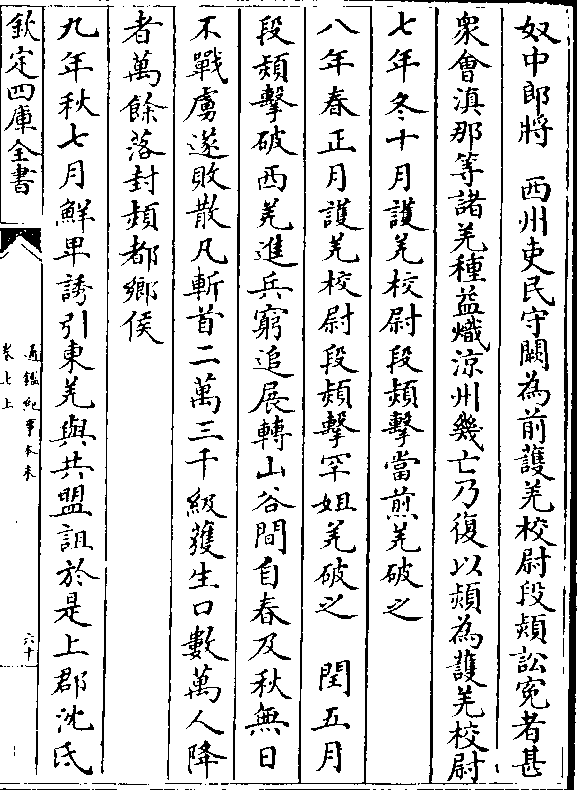 奴中郎將　西州吏民守闕為前護羌校尉段熲訟寃者甚
衆會滇那等諸羌種益熾涼州幾亡乃復以熲為護羌校尉
七年冬十月護羌校尉段熲擊當煎羌破之
八年春正月護羌校尉段熲擊罕姐羌破之　閏五月
段熲擊破西羌進兵窮追展轉山谷間自春及秋無日
不戰虜遂敗散凡斬首二萬三千級獲生口數萬人降
者萬餘落封熲都鄉侯
九年秋七月鮮卑誘引東羌與共盟詛於是上郡沈氐
欽定四庫全書
通鑑紀事本末
卷七上
六十